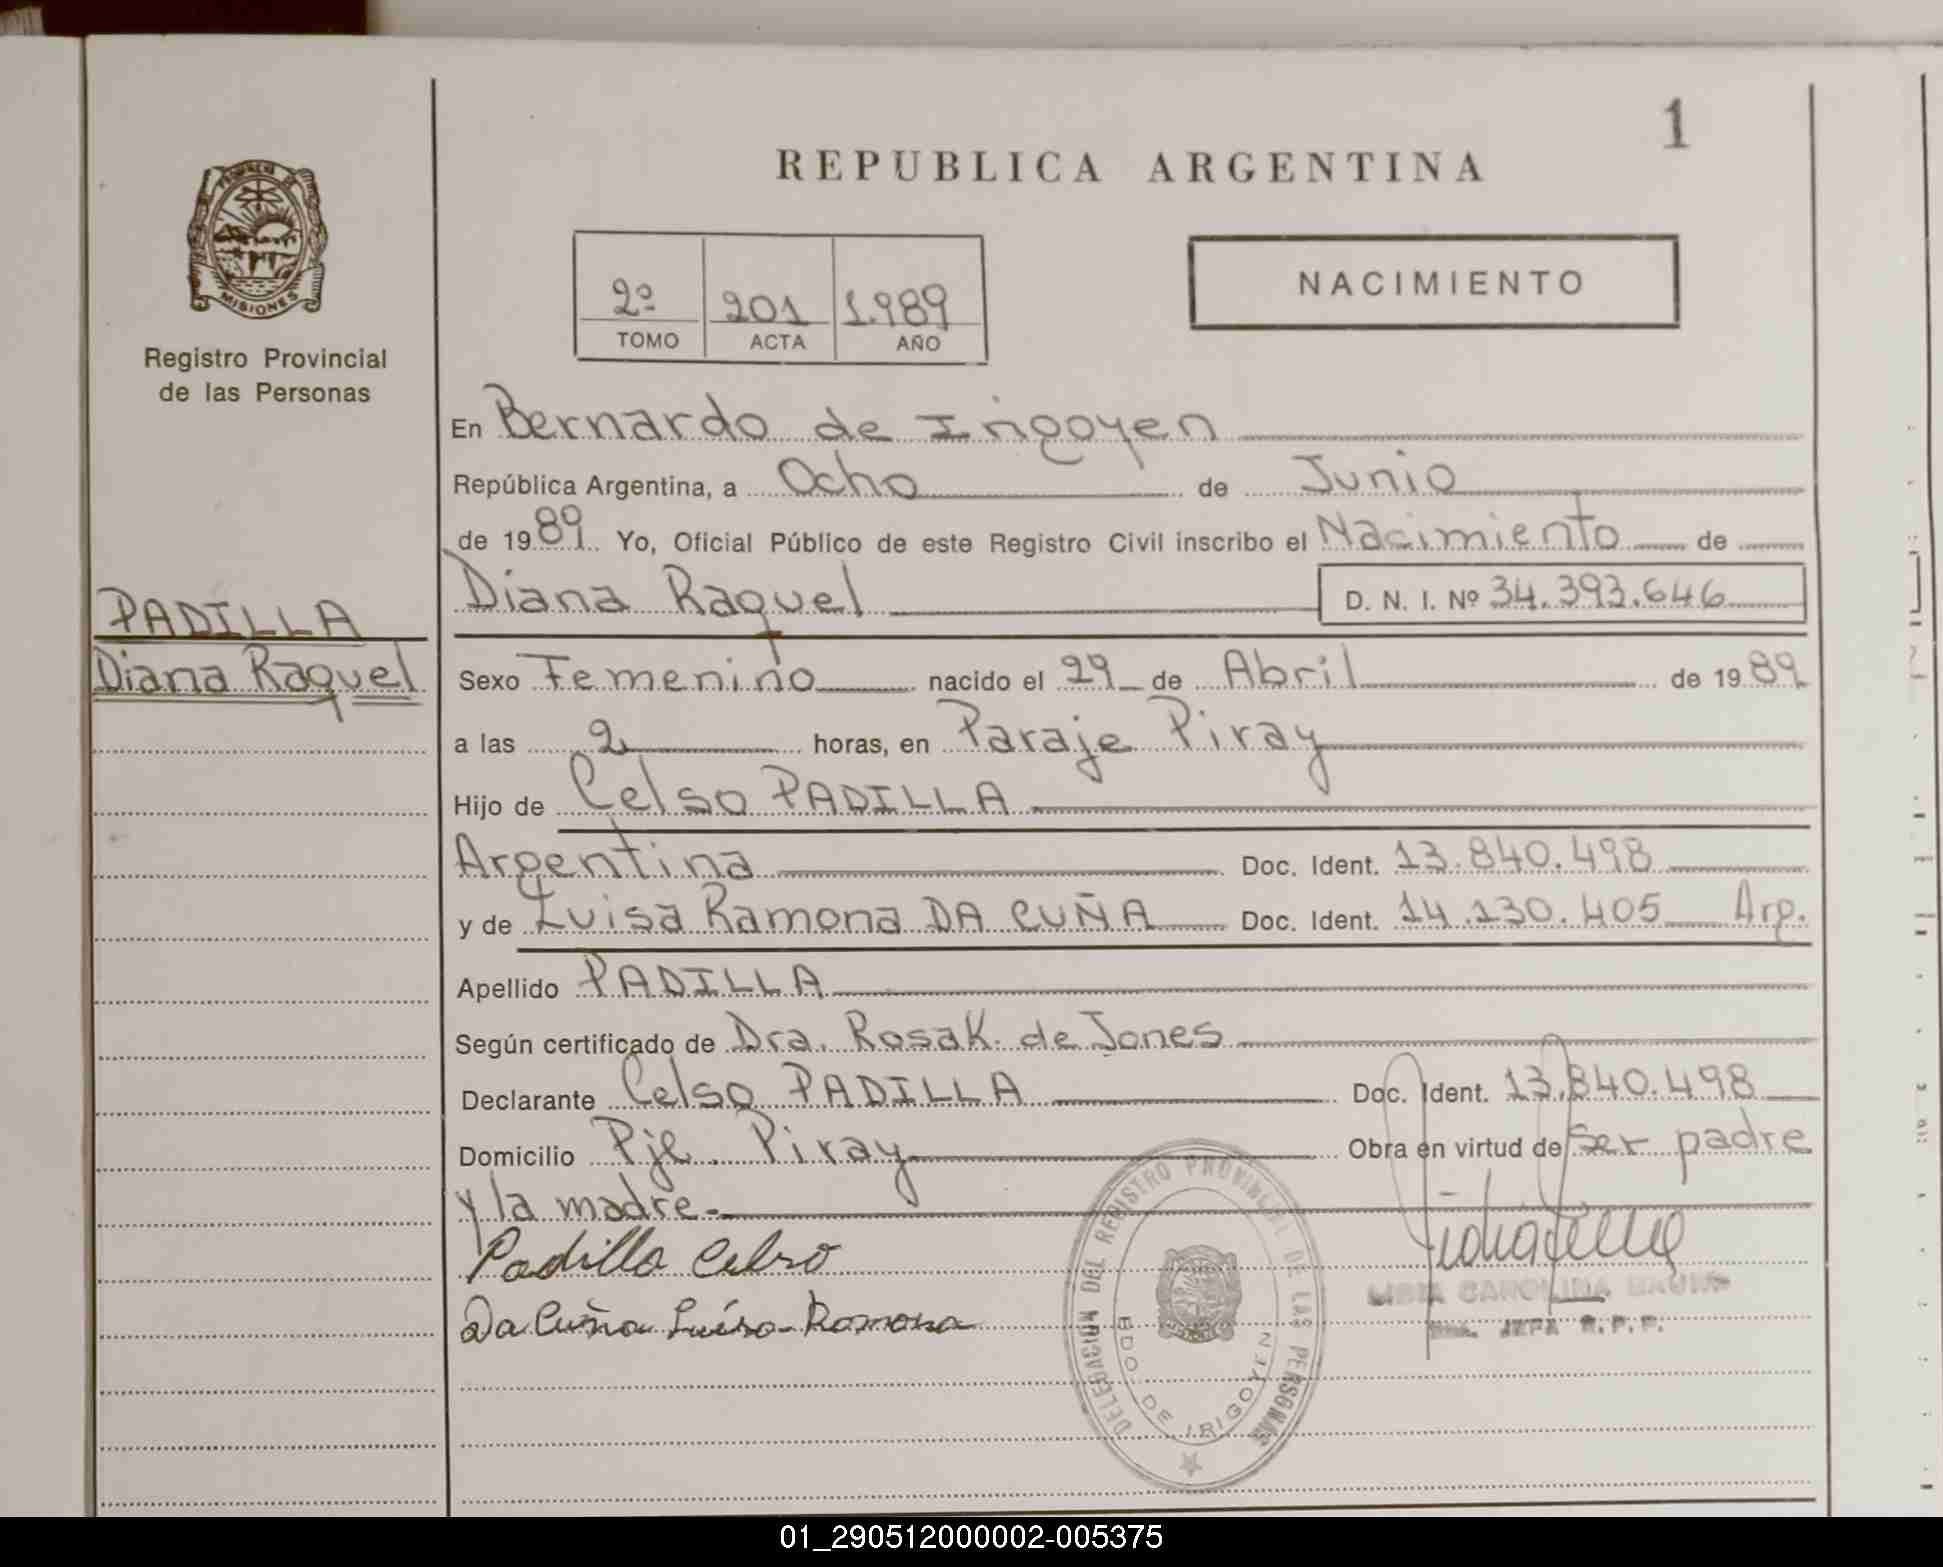 1
REPUBLICA ARGENTINA
PROVINCIA DE
MISIONES
Registro Provincial
de las Personas
2º 201 1.989
TOMO ACTA AÑO
NACIMIENTO
En Bernardo de Irigoyen
República Argentina, a Ocho de Junio
de 1989 Yo, Oficial Público de este Registro Civil inscribo el Nacimiento de
Diana Raquel D. N. I. Nº 34.393.646
PADILLA
Diana Raquel
Sexo Femenino nacido el 29 de Abril de 1989
a las 2 horas, en Paraje Piray
Hijo de Celso PADILLA
Argentina Doc. Ident. 13.840.498
y de Luisa Ramona DA CUÑA Doc. Ident. 14.130.405 Arg.
Apellido PADILLA
Según certificado de Dra. Rosa K. de Jones
Declarante Celso PADILLA Doc. Ident. 13.840.498
Domicilio Pje. Piray Obra en virtud de ser padre
y la madre.-
Padilla Celso
Da Cuña Luisa Ramona
DELEGACION DEL REGISTRO PROVINCIAL DE LAS PERSONAS
BDO. DE IRIGOYEN
CAROLINA
JEFA R.P.P.
01_290512000002-005375